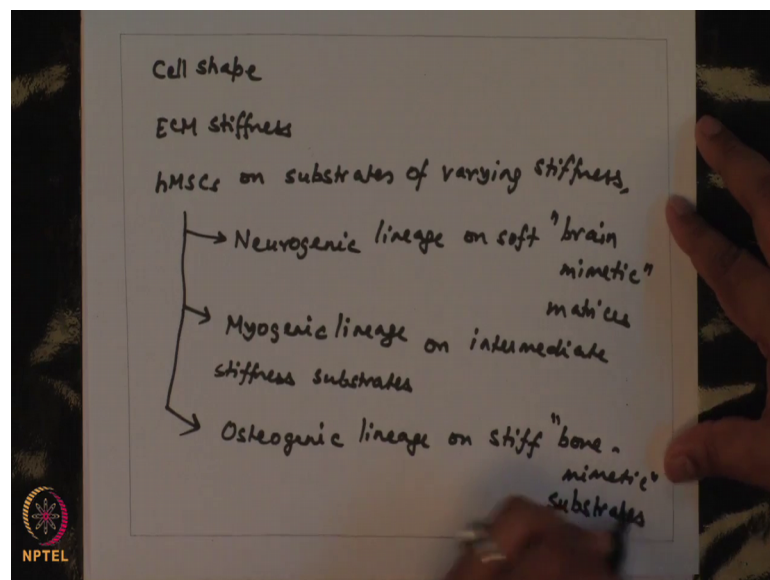 Cell shape
ECM stiffness
hMSCs on substrates of varying stiffness,
Neurogenic lineage on soft "brain
mimetic"
matrices
Myogenic lineage on intermediate
stiffness substrates
Osteogenic lineage on stiff "bone-
mimetic"
substrates
NPTEL